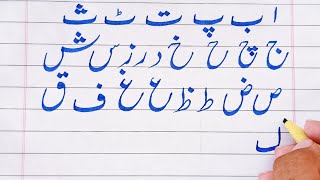 ا ب پ ت ٹ ث
ج چ ح خ د ر ز س ش
ص ض ط ظ ع غ ف ق